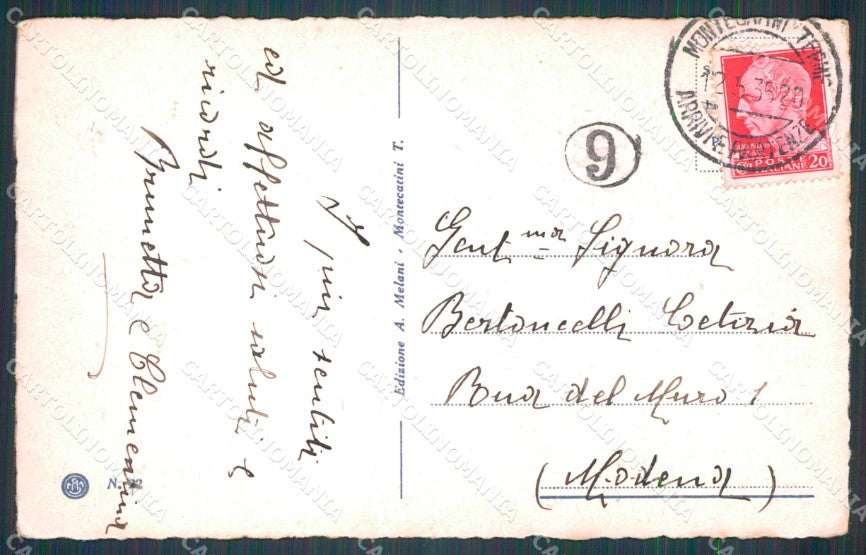 I più sentiti
ed affettuosi saluti e
ricordi
Brunetta e Clementina
N. 
Edizione A. Melani - Montecatini T.
9
MONTECATINI TERME
ARRIVI E PARTENZE
POSTE ITALIANE 20
Gent.ma Signora
Bertoncelli Letizia
Rua del Muro 1
(Modena)
CARTOLINOMANIA